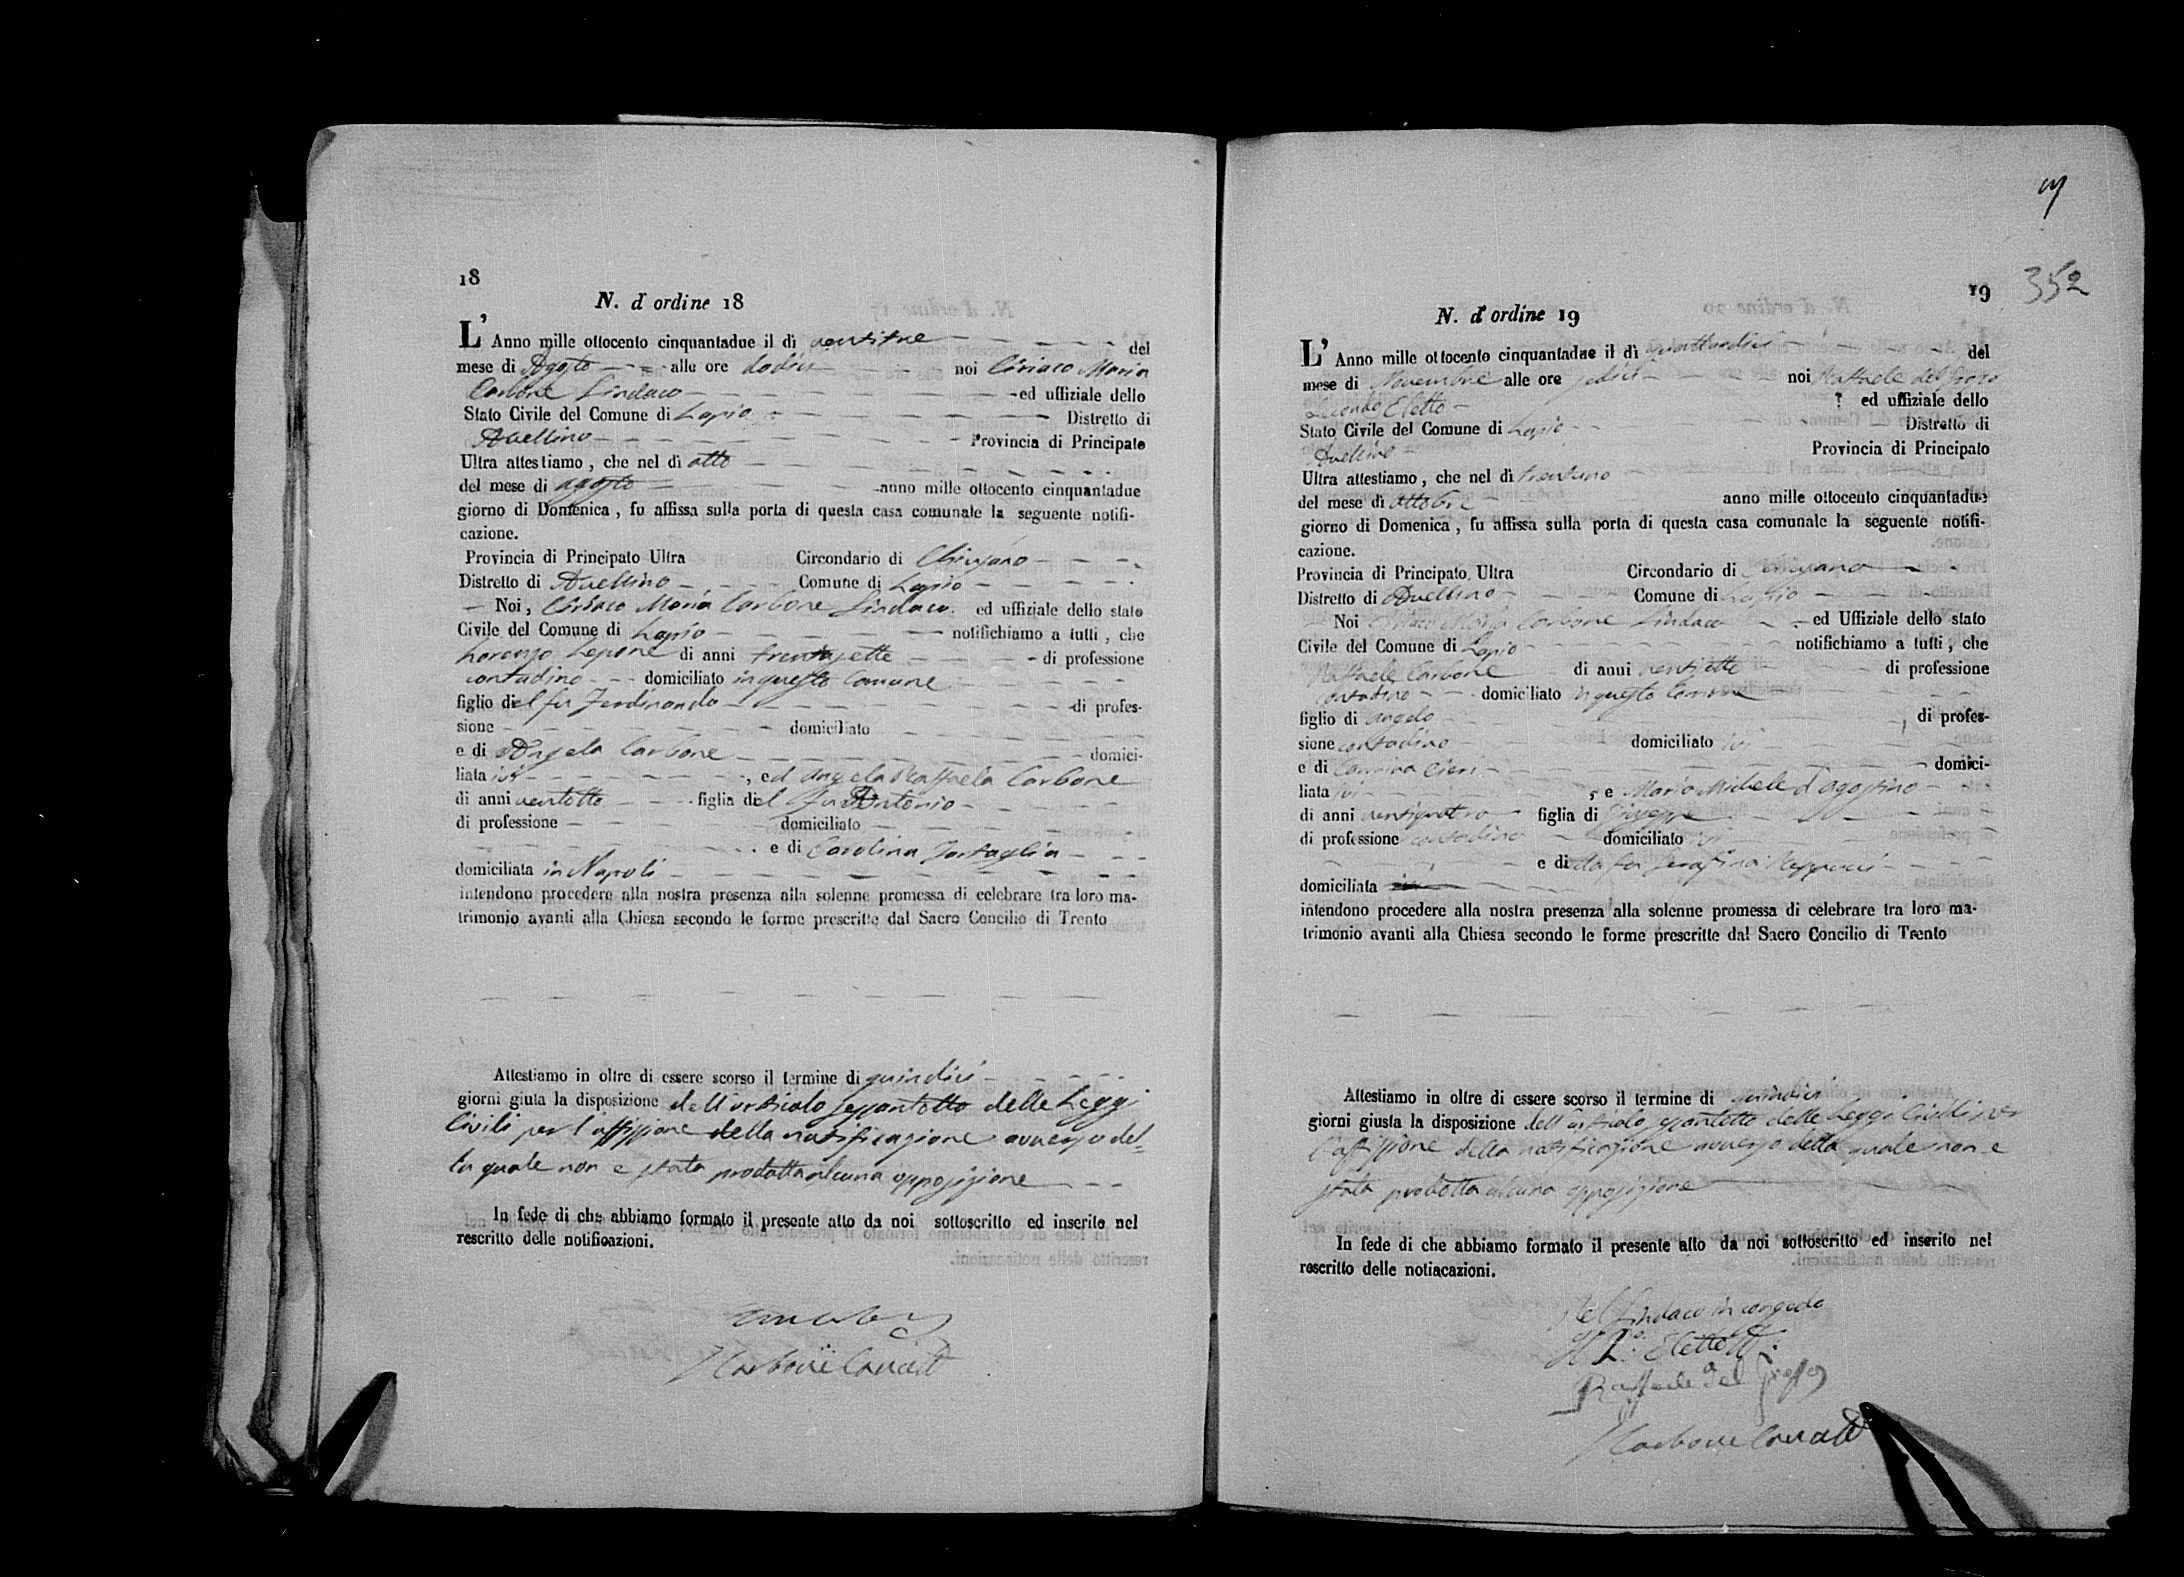 18
N. d ordine 18
L' Anno mille ottocento cinquantadue il dì ventitre del
mese di Agosto alle ore dodici noi Ciriaco Maria
Carbone Sindaco ed uffiziale dello
Stato Civile del Comune di Lapio Distretto di
Avellino Provincia di Principato
Ultra attestiamo, che nel dì otto
del mese di agosto anno mille ottocento cinquantadue
giorno di Domenica, fu affissa sulla porta di questa casa comunale la seguente notifi-
cazione.
Provincia di Principato Ultra Circondario di Chiusano
Distretto di Avellino Comune di Lapio
Noi, Ciriaco Maria Carbone Sindaco ed uffiziale dello stato
Civile del Comune di Lapio notifichiamo a tutti, che
Lorenzo Lepore di anni trentasette di professione
contadino domiciliato in questo Comune
figlio del fu Ferdinando di profes-
sione domiciliato
e di Angela Carbone domici-
liata ivi, ed Angela Raffaela Carbone
di anni ventotto figlia del fu Antonio
di professione domiciliato
e di Carolina Tartaglia
domiciliata in Napoli
intendono procedere alla nostra presenza alla solenne promessa di celebrare tra loro ma-
trimonio avanti alla Chiesa secondo le forme prescritte dal Sacro Concilio di Trento
Attestiamo in oltre di essere scorso il termine di quindici
giorni giuta la disposizione dell'articolo sessantotto delle Leggi
Civili per l'affissione della notificazione avverso del-
la quale non e stata prodotta alcuna opposizione
In fede di che abbiamo formato il presente atto da noi sottoscritto ed inserito nel
rescritto delle notificazioni.
Carbone
19
352
N. d' ordine 19
L' Anno mille ottocento cinquantadue il dì quattordici del
mese di Novembre alle ore sedici noi Raffaele del Grosso
Secondo Eletto ed uffiziale dello
Stato Civile del Comune di Lapio Distretto di
Avellino Provincia di Principato
Ultra attestiamo, che nel dì trentuno
del mese di ottobre anno mille ottocento cinquantadue
giorno di Domenica, fu affissa sulla porta di questa casa comunale la seguente notifi-
cazione.
Provincia di Principato Ultra Circondario di Chiusano
Distretto di Avellino Comune di Lapio
Noi Ciriaco Maria Carbone Sindaco ed Uffiziale dello stato
Civile del Comune di Lapio notifichiamo a tutti, che
Raffaele Carbone di anni di professione
contadino domiciliato in questo Comune
figlio di Angelo, di profes-
sione contadino domiciliato ivi
e di Carmina Cieri domici-
liata ivi, e Maria Michele d'Agostino
di anni ventiquattro figlia di Giuseppe
di professione contadino domiciliato ivi
e della fu Serafina
domiciliata
intendono procedere alla nostra presenza alla solenne promessa di celebrare tra loro ma-
trimonio avanti alla Chiesa secondo le forme prescritte dal Sacro Concilio di Trento
Attestiamo in oltre di essere scorso il termine di quindici
giorni giusta la disposizione dell'articolo sessantotto delle Leggi Civili per
l'affissione della notificazione avverso della quale non e
stata prodotta alcuna opposizione
In fede di che abbiamo formato il presente atto da noi sottoscritto ed inserito nel
rescritto delle notiacazioni.
Pel Sindaco in congedo
Il 2° Eletto
Raffaele del Grosso
Carbone